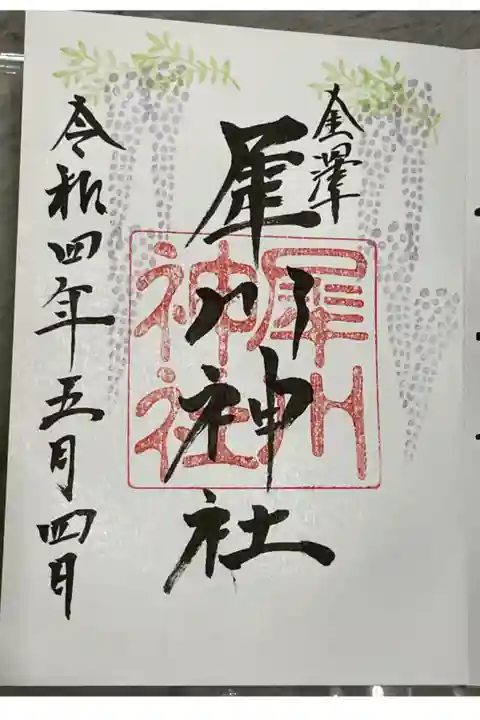 金澤
犀川神社
犀川
神社
令和四年五月四日